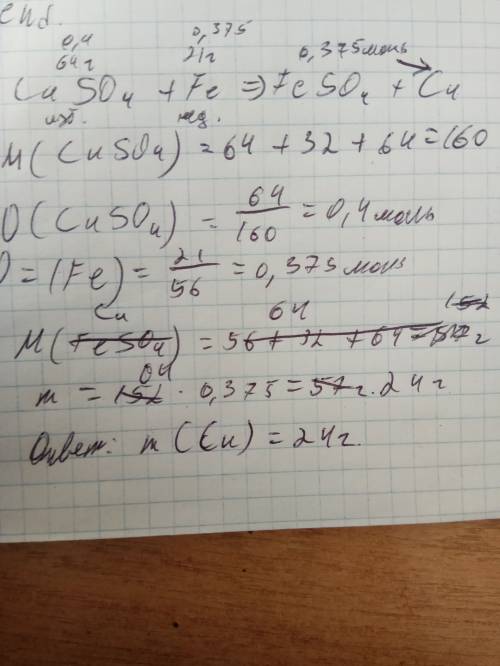 0,4 0,375
64г 21г 0,375моль
CuSO4 + Fe => FeSO4 + Cu
изб. нед.
M(CuSO4) = 64 + 32 + 64 = 160
υ(CuSO4) = 64/160 = 0,4 моль
υ = (Fe) = 21/56 = 0,375 моль
Cu 64 152
M(FeSO4) = 56 + 32 + 64 =
64
m = 152 · 0,375 = 57г. 24г.
Ответ: m(Cu) = 24г.